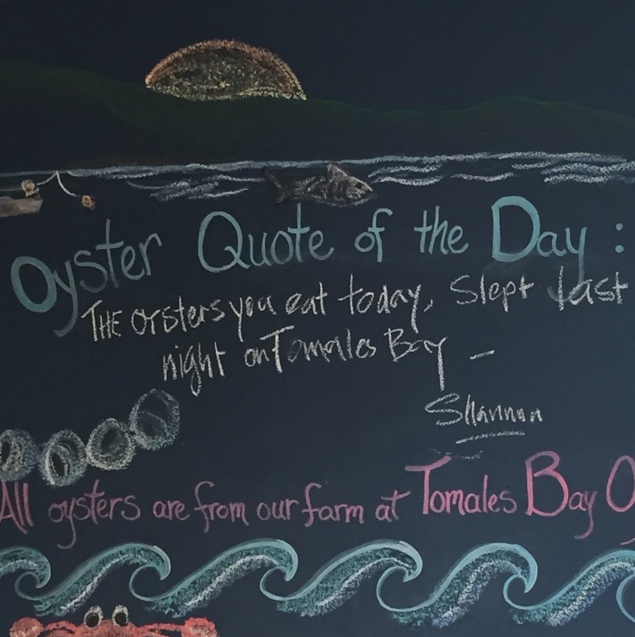 Oyster Quote of the Day :
THE oysters you eat today, Slept last
night on Tomales Bay –
Shannon
All oysters are from our farm at Tomales Bay O